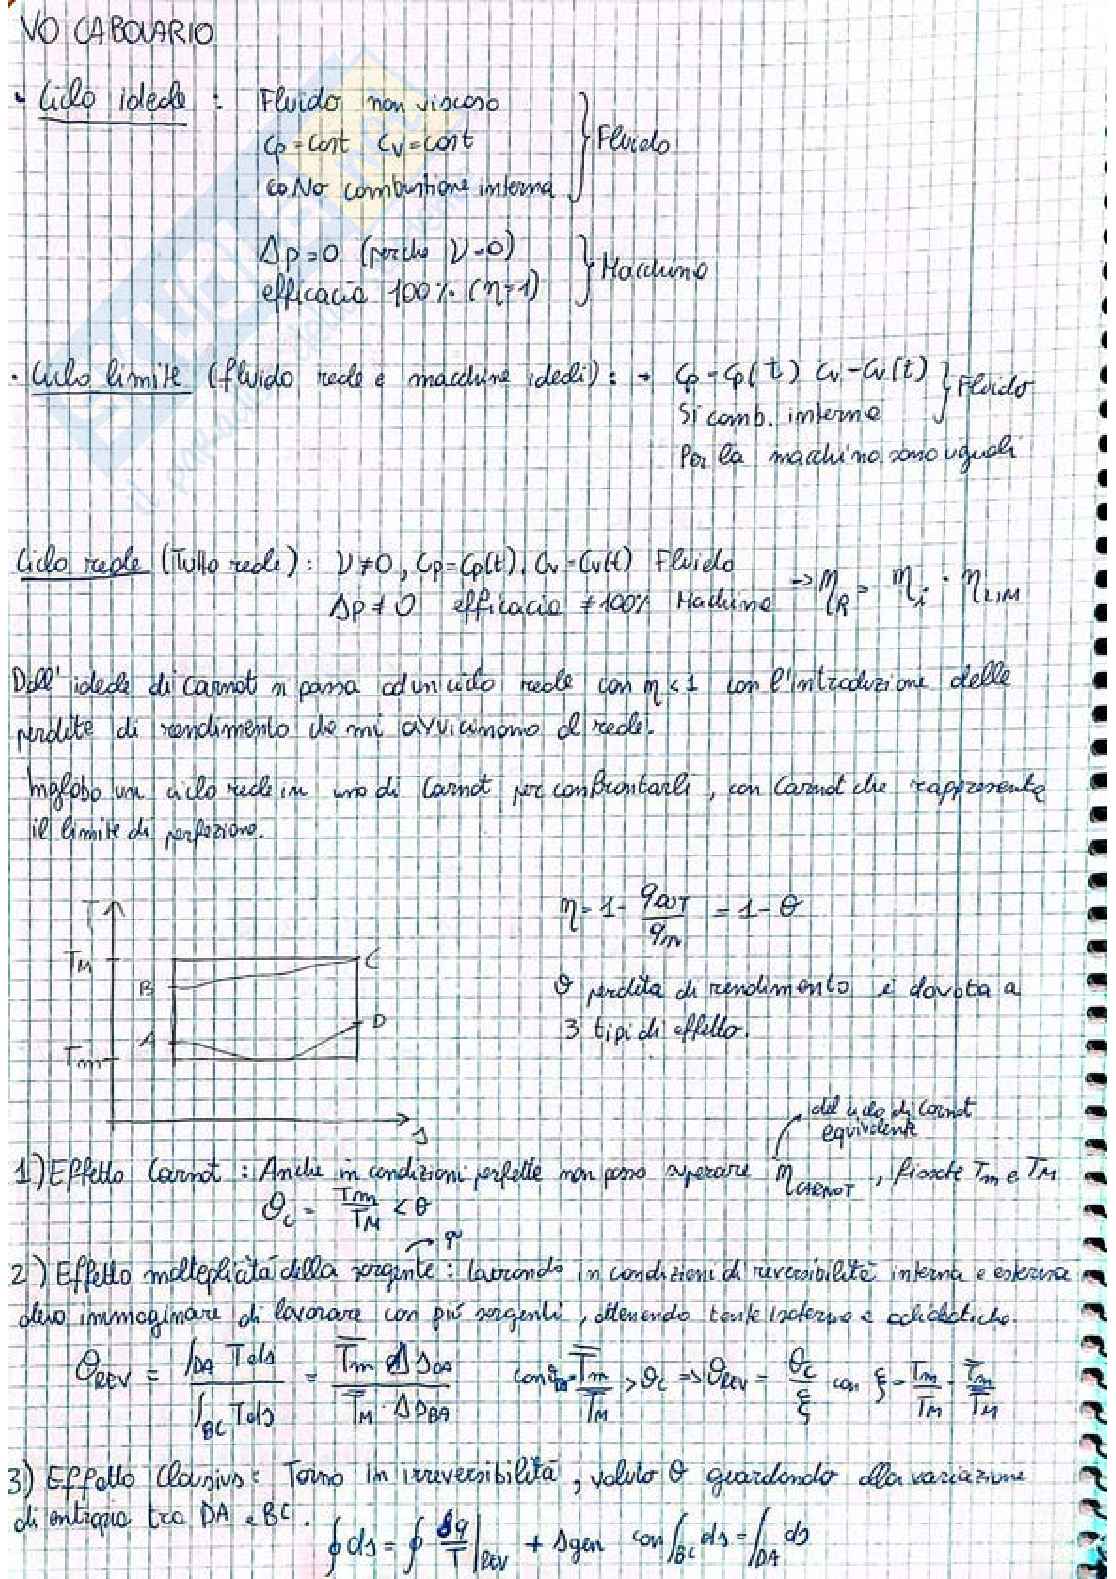 VOCABOLARIO
• Ciclo ideale : Fluido non viscoso
Cp = cost Cv = cost } Fluido
No combustione interna
Δp = 0 (perché ν = 0)
efficacia 100% (η = 1) } Macchina
• Ciclo limite (fluido reale e macchine ideali) : → Cp = Cp(t) Cv = Cv(t) } Fluido
Si comb. interna
Per la macchina sono uguali
Ciclo reale (Tutto reale) : ν ≠ 0, Cp = Cp(t), Cv = Cv(t) Fluido
Δp ≠ 0 efficacia ≠ 100% Macchina → η_R = η_i · η_LIM
Dall'ideale di Carnot si passa ad un ciclo reale con η < 1 con l'introduzione delle
perdite di rendimento che mi avvicinano al reale.
Inglobo un ciclo reale in uno di Carnot per confrontarli, con Carnot che rappresenta
il limite di perfezione.
T
T_M
B
C
A
D
T_m
s
η = 1 - q_OUT / q_in = 1 - θ
θ perdita di rendimento è dovuta a
3 tipi di effetto.
del ciclo di Carnot
equivalente
1) Effetto Carnot : Anche in condizioni perfette non posso superare η_CARNOT, fissate T_m e T_M
θ_c = T_m / T_M < θ
2) Effetto molteplicità della sorgente : lavorando in condizioni di reversibilità interna e esterna
devo immaginare di lavorare con più sorgenti, ottenendo tante isoterme e adiabatiche.
θ_REV = ∫_DA T ds / ∫_BC T ds = T̿_m · Δs_DA / T̿_M · Δs_BA con T̿_m / T̿_M > θ_c => θ_REV = θ_c / ξ con ξ = T_m / T_M
3) Effetto Clausius : Torno in irreversibilità, valuto θ guardando alla variazione
di entropia tra DA e BC.
∮ ds = ∮ δq / T |_REV + Δgen con ∫_BC ds = ∫_DA ds